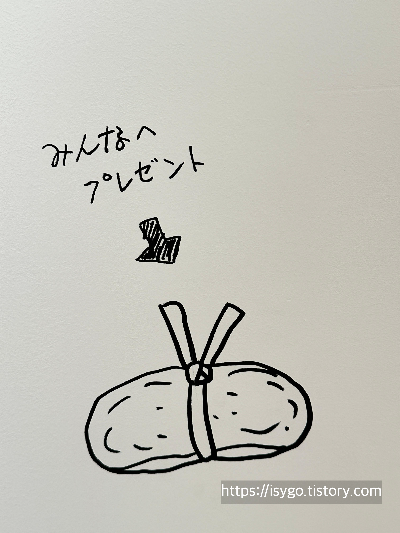 みんなへ
プレゼント
https://isygo.tistory.com